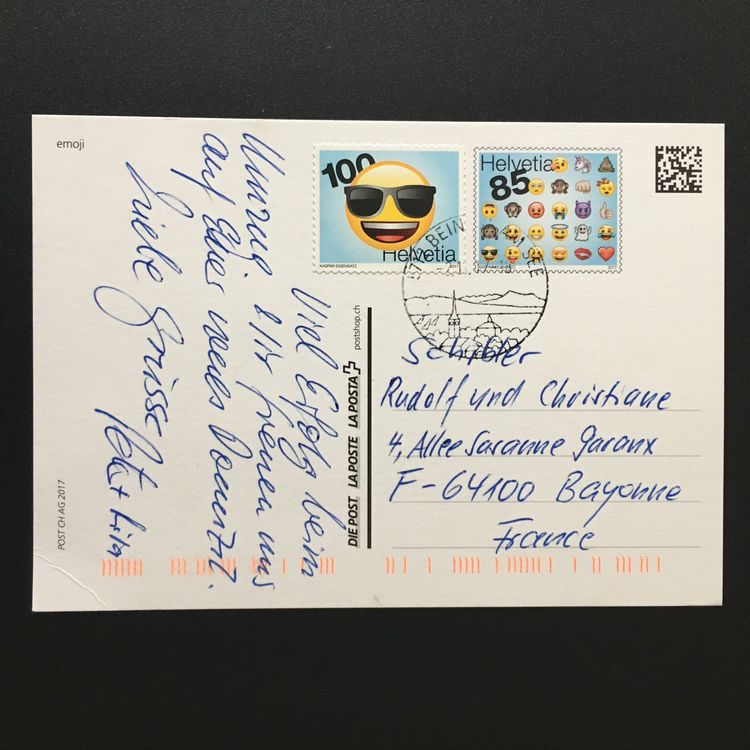 emoji
100
Helvetia
KASPAR EIGENSATZ
2017
Helvetia
85
2017
Viel Erfolg beim
Umzug & Wir freuen uns
auf Euer neues Domizil.
Liebe Grüsse
POST CH AG 2017
DIE POST LA POSTE LA POSTA
postshop.ch
BEIN
SEE
Schibler
Rudolf und Christiane
4, Allee Suzanne Garanx
F-64100 Bayonne
France